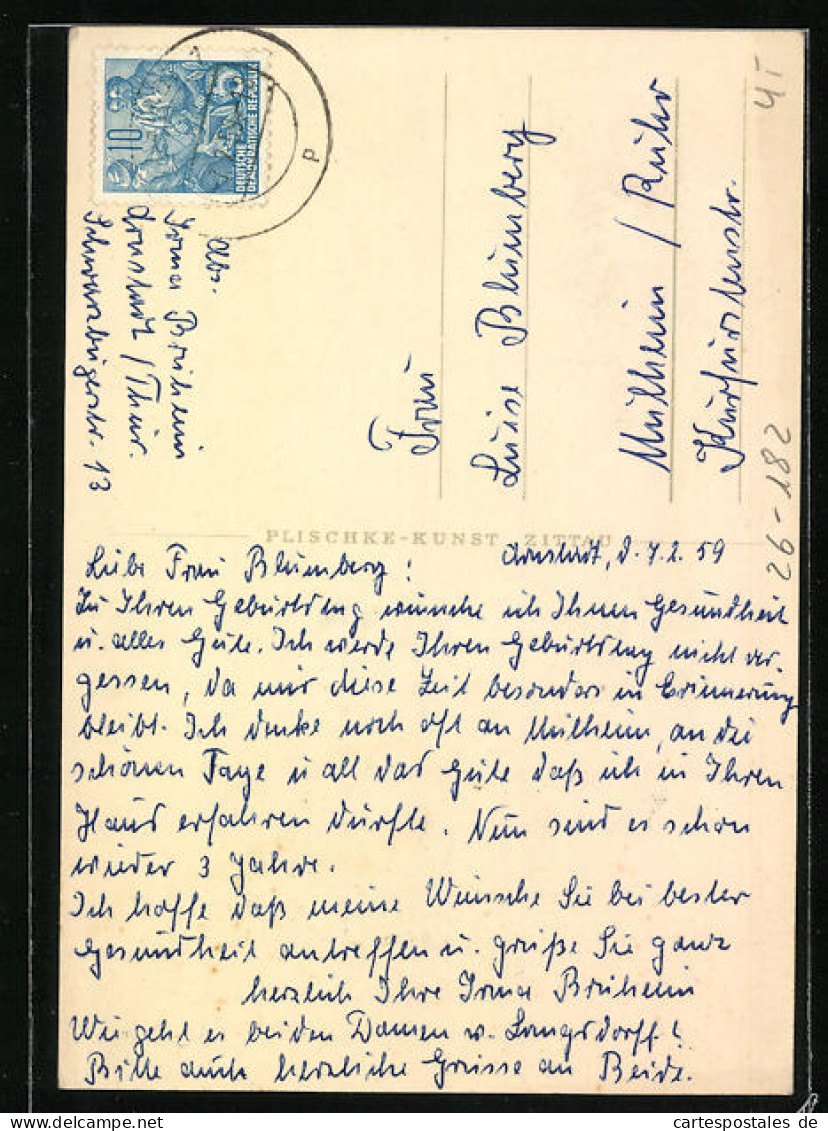 10
DEUTSCHE
DEMOKRATISCHE REPUBLIK
p
Abs.
Irma Brüheim
Arnstadt / Thür.
Schwarzburgerstr. 13
Frau
Luise Blumberg
Mülheim / Ruhr
Kurfürstenstr.
41
26-182
PLISCHKE-KUNST, ZITTAU
Arnstadt, d. 7.2.59
Liebe Frau Blumberg!
Zu Ihrem Geburtstag wünsche ich Ihnen Gesundheit
u. alles Gute. Ich werde Ihren Geburtstag nicht ver-
gessen, da mir diese Zeit besonders in Erinnerung
bleibt. Ich denke noch oft an Mülheim, an die
schönen Tage u all das Gute daß ich in Ihrem
Haus erfahren durfte. Nun sind es schon
wieder 3 Jahre.
Ich hoffe daß meine Wünsche Sie bei bester
Gesundheit antreffen u. grüße Sie ganz
herzlich Ihre Irma Brüheim
Wie geht es beiden Damen v. Langsdorff?
Bitte auch herzliche Grüsse an Beide.
cartespostales de